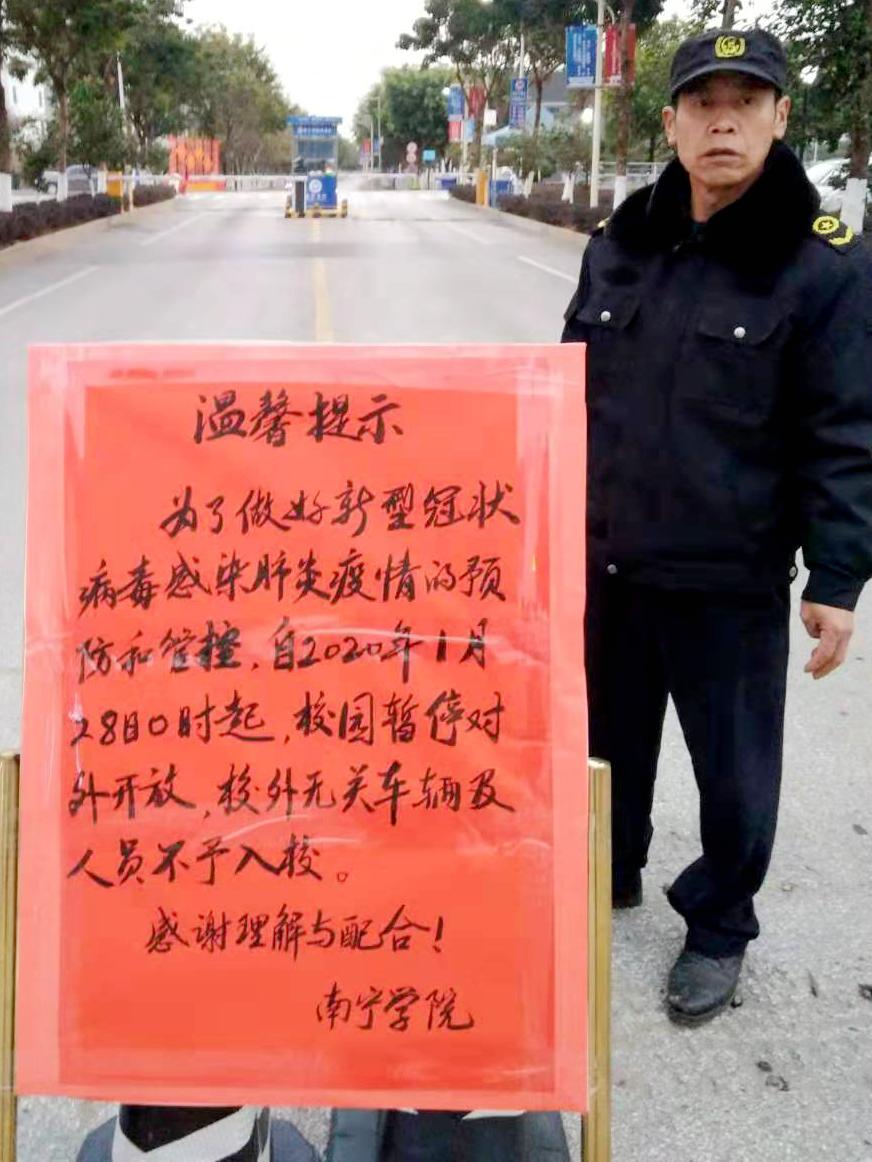 温馨提示
为了做好新型冠状
病毒感染肺炎疫情的预
防和管控,自2020年1月
28日0时起,校园暂停对
外开放,校外无关车辆及
人员不予入校。
感谢理解与配合!
南宁学院